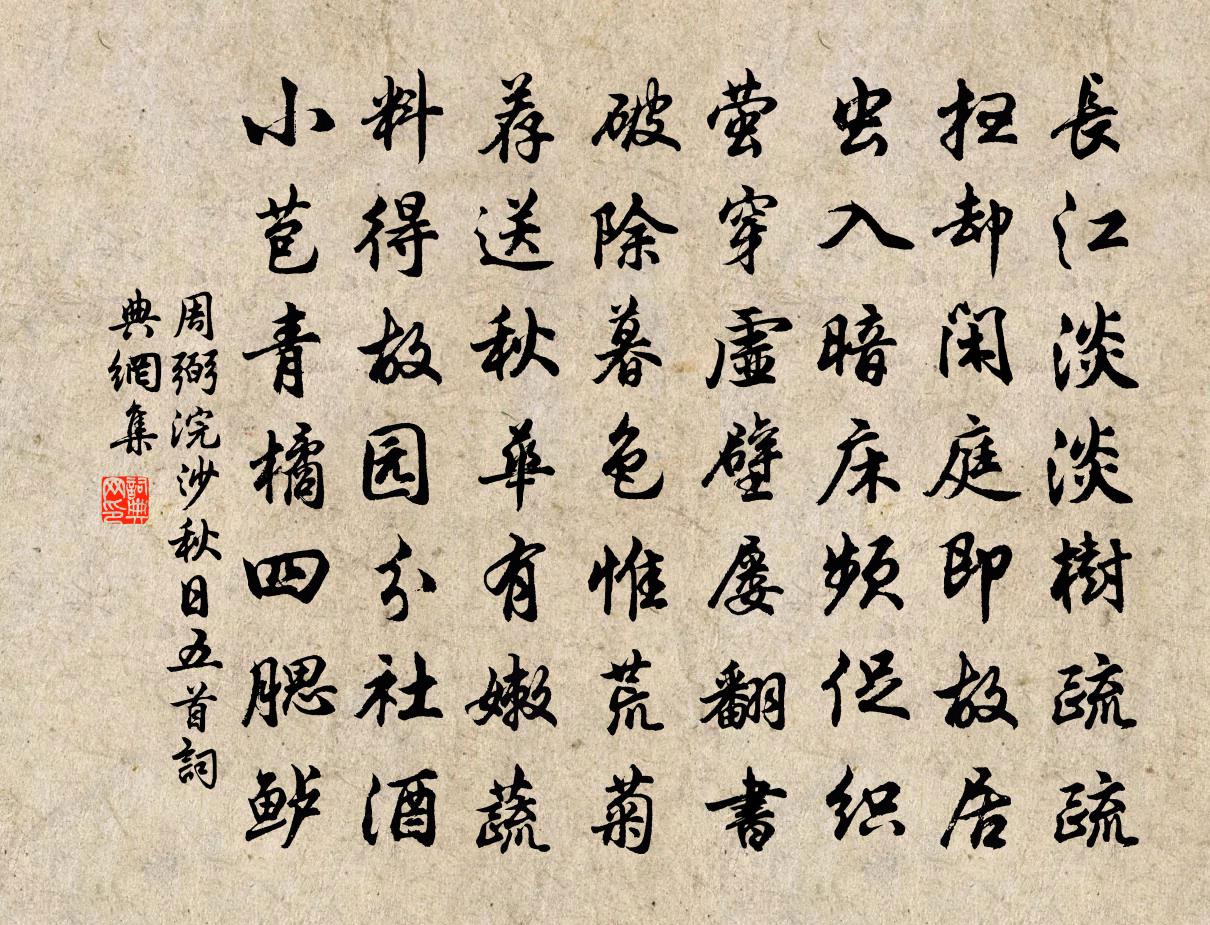 長江淡淡樹疏疏
扫却闲庭即故居
虫入暗床频促织
萤穿虛壁屡翻書
破除暮色惟荒菊
荐送秋華有嫩蔬
料得故园分社酒
小苞青橘四腮鲈
周弼浣沙秋日五首詞
典網集
詞典
网印